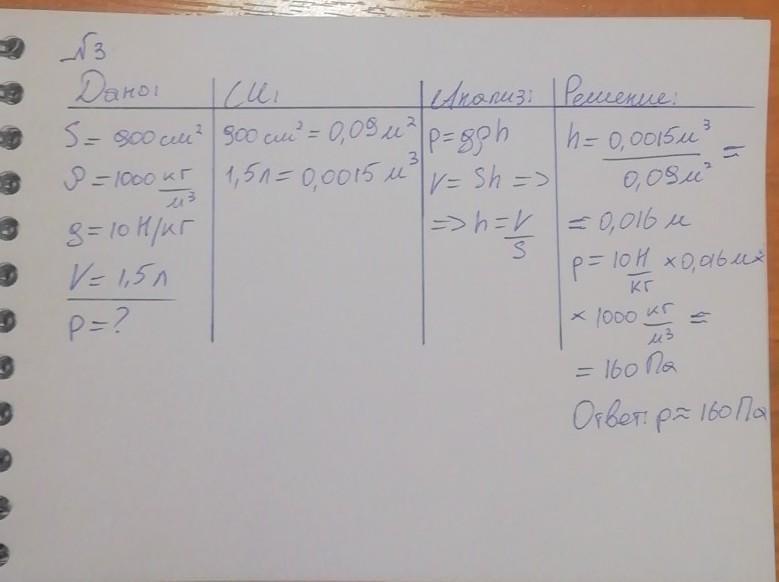 №3
Дано: СИ: Анализ: Решение:
S = 900 см² 900 см² = 0,09 м² p = gρh h = 0,0015 м³ / 0,09 м² =
ρ = 1000 кг/м³ 1,5 л = 0,0015 м³ V = Sh =>
g = 10 Н/кг => h = V/S = 0,016 м
V = 1,5 л p = 10 Н/кг × 0,016 м ×
p = ? × 1000 кг/м³ =
= 160 Па
Ответ: p ≈ 160 Па